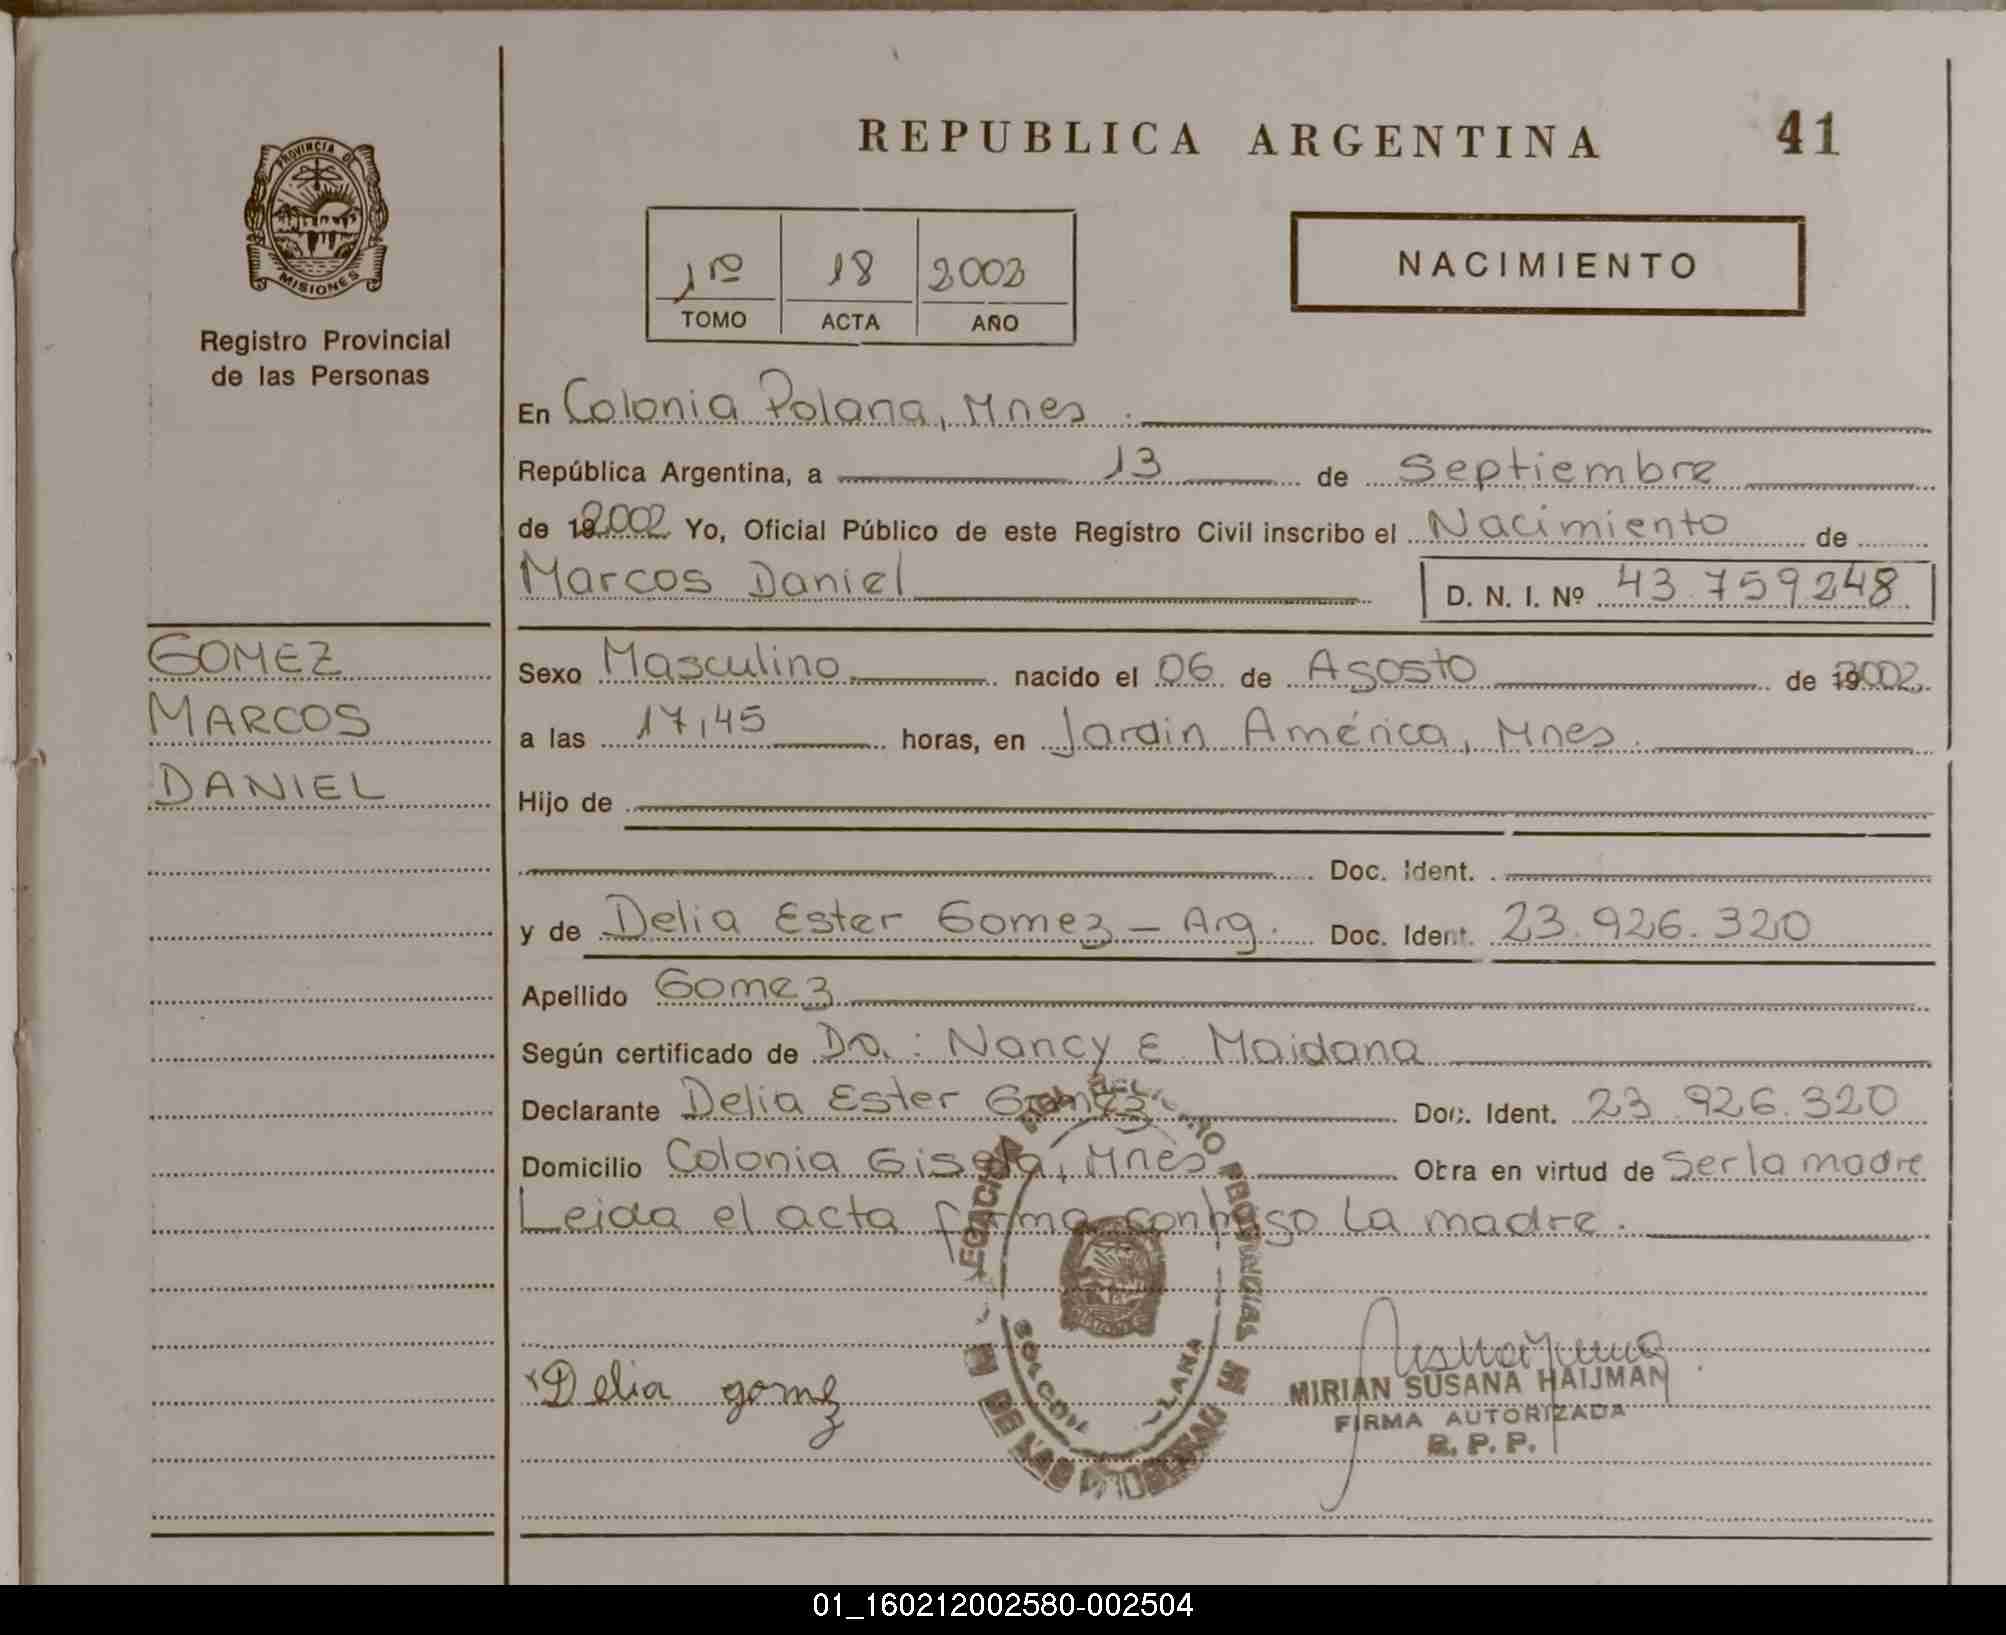 REPUBLICA ARGENTINA 41
PROVINCIA DE
MISIONES
Registro Provincial
de las Personas
1ro 18 2002
TOMO ACTA AÑO
NACIMIENTO
En Colonia Polana, Mnes.
República Argentina, a 13 de Septiembre
de 192002 Yo, Oficial Público de este Registro Civil inscribo el Nacimiento de
Marcos Daniel D. N. I. Nº 43.759248
GOMEZ
MARCOS
DANIEL
Sexo Masculino nacido el 06 de Agosto de 192002
a las 17,45 horas, en Jardin América, Mnes.
Hijo de
Doc. Ident.
y de Delia Ester Gomez - Arg. Doc. Ident. 23.926.320
Apellido Gomez
Según certificado de Dra.: Nancy E. Maidana
Declarante Delia Ester Gomez Doc. Ident. 23.926.320
Domicilio Colonia Gisela, Mnes Obra en virtud de Ser la madre
Leida el acta firma conmigo la madre.
Delia gomez
MIRIAN SUSANA HAIJMAN
FIRMA AUTORIZADA
R. P. P.
01_160212002580-002504